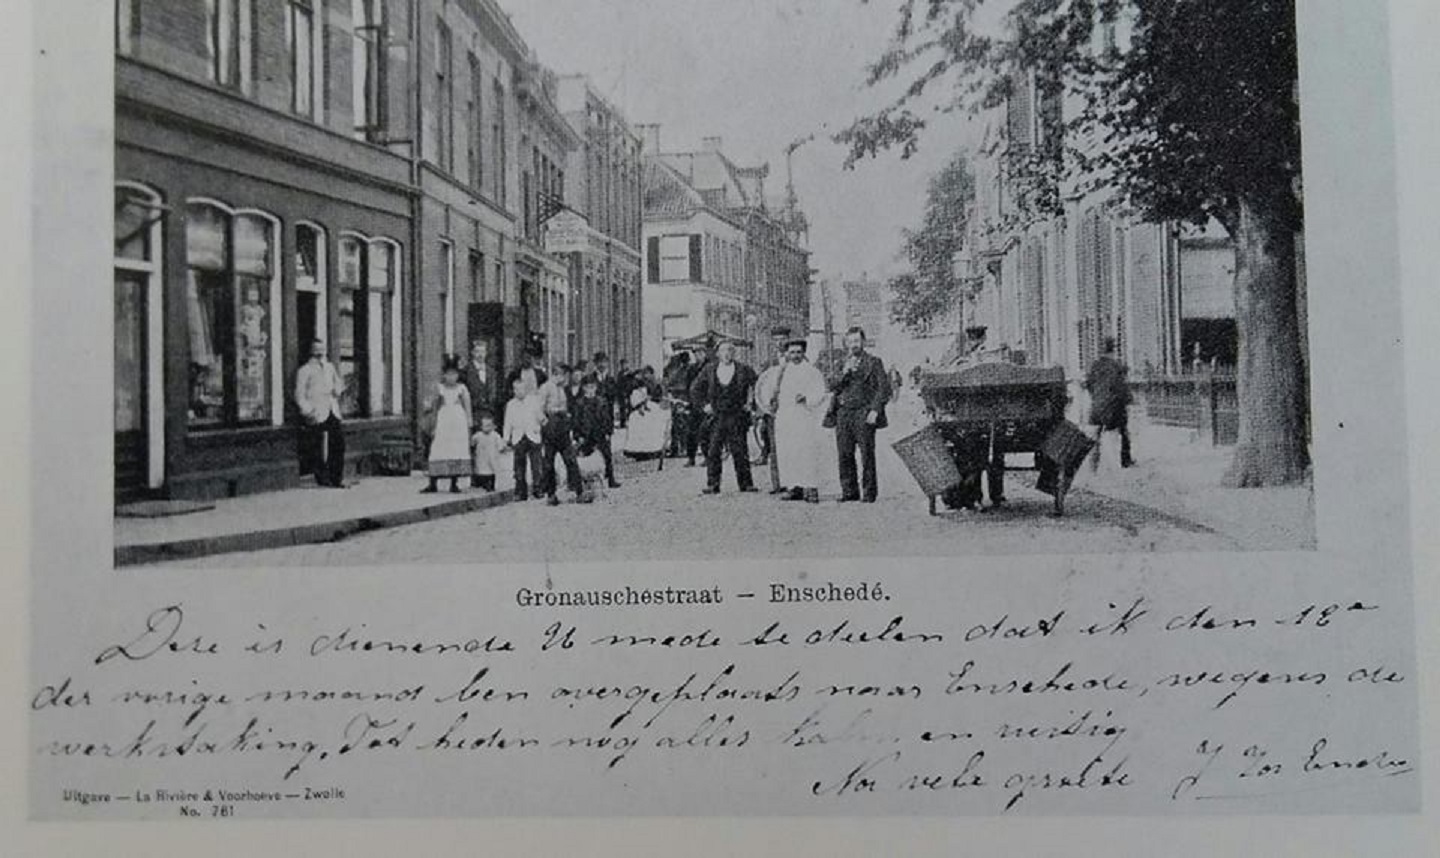 Gronauschestraat — Enschedé.
Deze is dienende U mede te deelen dat ik den 18e
der vorige maand ben overgeplaats naar Enschede, wegens de
werkstaking. Tot heden nog alles kalm en rustig
Na vele groete J
Uitgave — La Rivière & Voorhoeve — Zwolle
No. 761